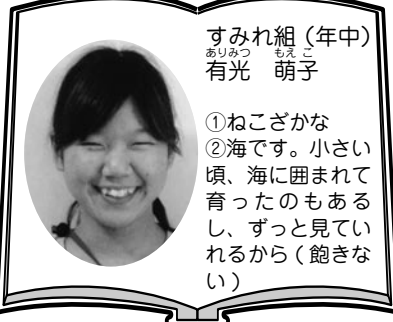 すみれ組（年中）
ありみつ　もえこ
有光　萌子
①ねこざかな
②海です。小さい
頃、海に囲まれて
育ったのもある
し、ずっと見てい
れるから（飽きな
い）